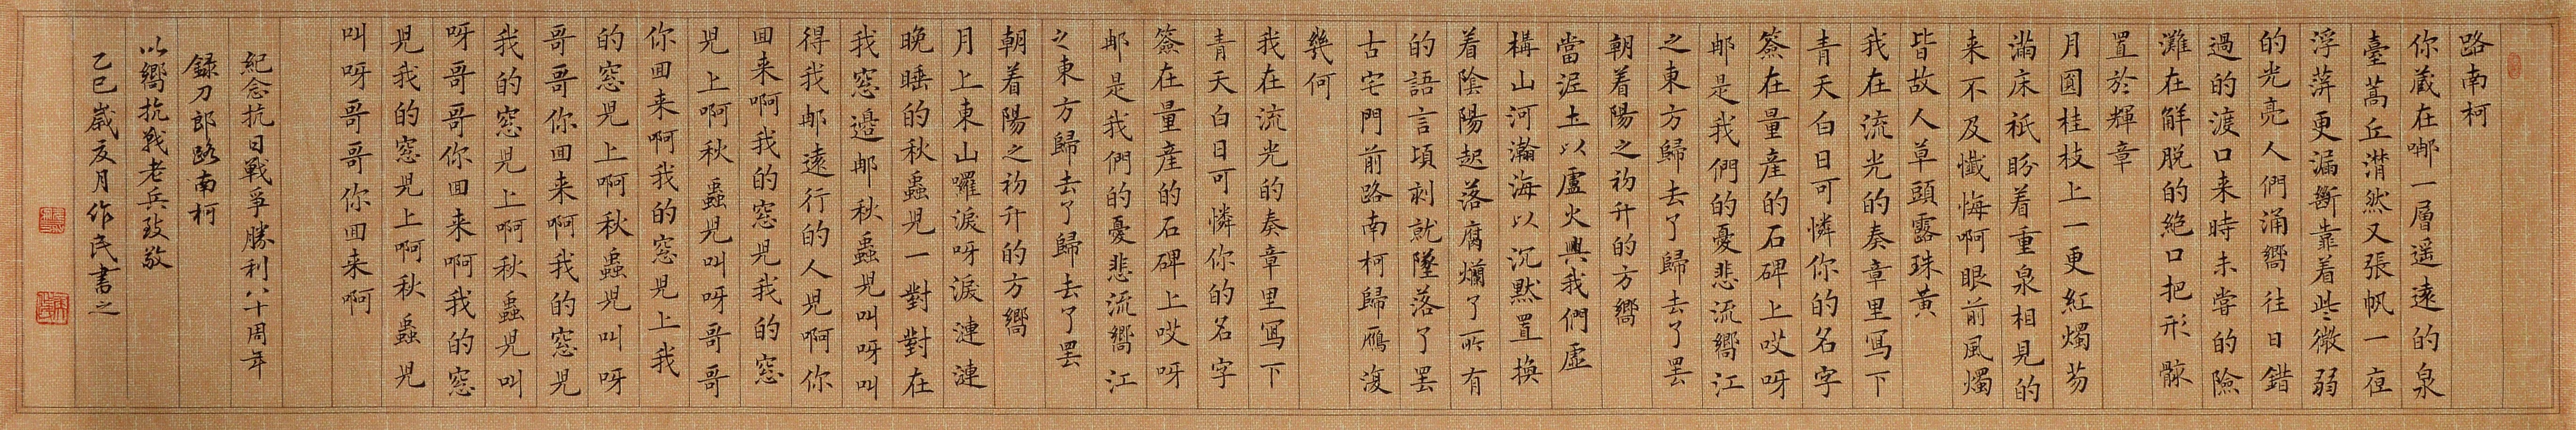 路南柯
你藏在哪一層遥遠的泉
臺蒿丘潸然又張帆一夜
浮萍更漏斷靠着些微弱
的光亮人們涌嚮往日錯
過的渡口来時未嘗的險
灘在解脱的絶口把形骸
置於輝章
月圓桂枝上一更紅燭芴
滿床祇盼着重泉相見的
来不及懺悔啊眼前風燭
皆故人草頭露珠黄
我在流光的奏章里寫下
青天白日可憐你的名字
簽在量産的石碑上哎呀
邮是我們的憂悲流嚮江
之東方歸去了歸去了罢
朝着陽之初升的方嚮
當泥土以盧火與我們虚
構山河瀚海以沉默置换
着陰陽起落腐爛了所有
的語言頃刻就墜落了罢
古宅門前路南柯歸雁復
幾何
我在流光的奏章里寫下
青天白日可憐你的名字
簽在量産的石碑上哎呀
邮是我們的憂悲流嚮江
之東方歸去了歸去了罢
朝着陽之初升的方嚮
月上東山囉淚呀淚漣漣
晚睡的秋蟲児一對對在
我窓邉邮秋蟲児叫呀叫
得我邮遠行的人児啊你
回来啊我的窓児我的窓
児上啊秋蟲児叫呀哥哥
你回来啊我的窓児上我
的窓児上啊秋蟲児叫呀
哥哥你回来啊我的窓児
我的窓児上啊秋蟲児叫
呀哥哥你回来啊我的窓
児我的窓児上啊秋蟲児
叫呀哥哥你回来啊
紀念抗日戰爭勝利八十周年
録刀郎路南柯
以嚮抗戰老兵致敬
乙巳嵗友月作民書之